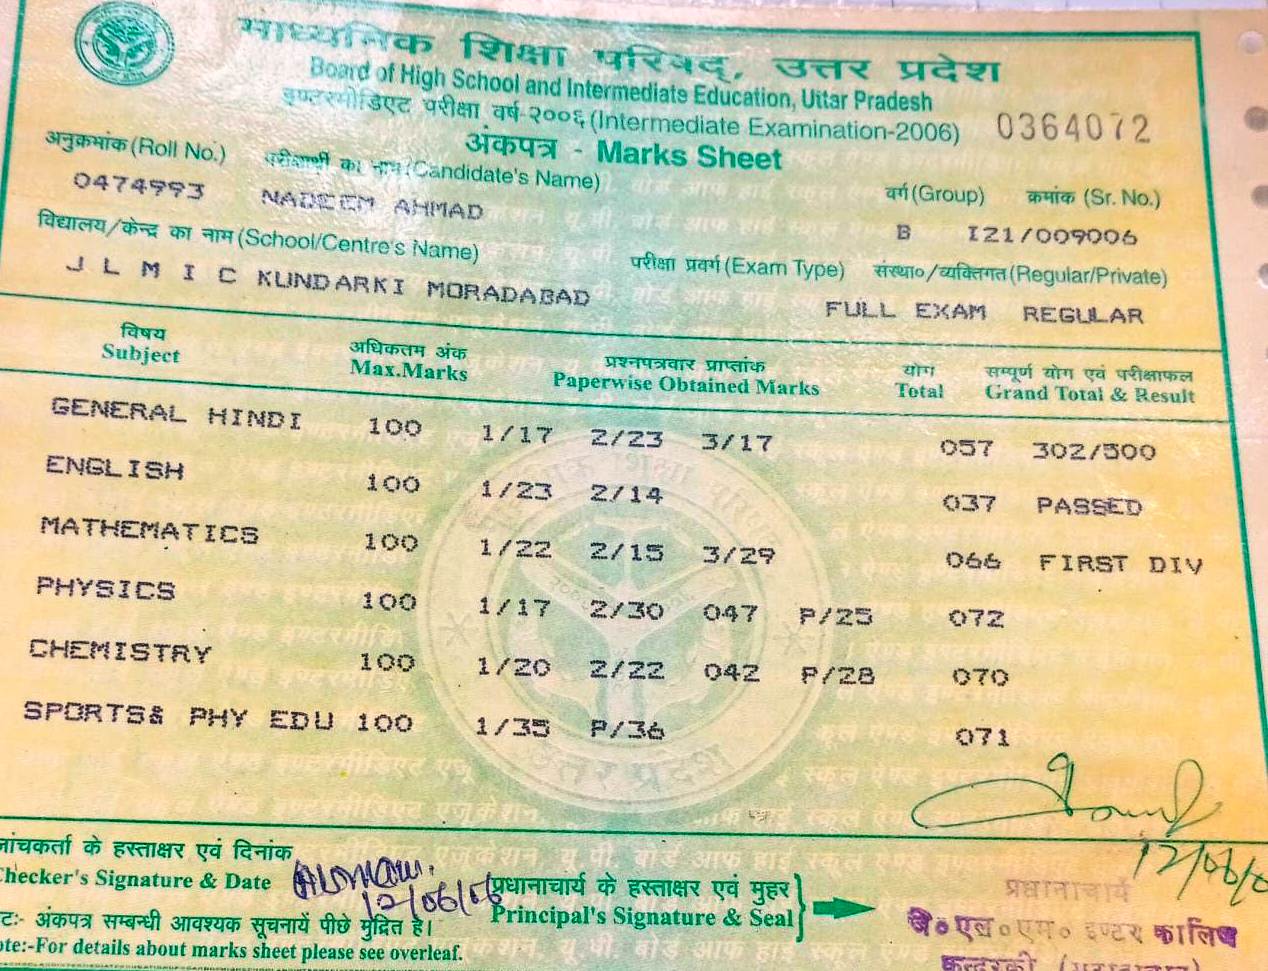 माध्यमिक शिक्षा परिषद्, उत्तर प्रदेश
Board of High School and Intermediate Education, Uttar Pradesh
इण्टरमीडिएट परीक्षा वर्ष-२००६ (Intermediate Examination-2006) 0364072
अंकपत्र - Marks Sheet
अनुक्रमांक (Roll No.) परीक्षार्थी का नाम (Candidate's Name) वर्ग (Group) क्रमांक (Sr. No.)
0474993 NADEEM AHMAD B I21/009006
विद्यालय/केन्द्र का नाम (School/Centre's Name) परीक्षा प्रवर्ग (Exam Type) संस्था०/व्यक्तिगत (Regular/Private)
J L M I C KUNDARKI MORADABAD FULL EXAM REGULAR
विषय अधिकतम अंक प्रश्नपत्रवार प्राप्तांक योग सम्पूर्ण योग एवं परीक्षाफल
Subject Max.Marks Paperwise Obtained Marks Total Grand Total & Result
GENERAL HINDI 100 1/17 2/23 3/17 057 302/500
ENGLISH 100 1/23 2/14 037 PASSED
MATHEMATICS 100 1/22 2/15 3/29 066 FIRST DIV
PHYSICS 100 1/17 2/30 047 P/25 072
CHEMISTRY 100 1/20 2/22 042 P/28 070
SPORTS& PHY EDU 100 1/35 P/36 071
उत्तर प्रदेश
जांचकर्ता के हस्ताक्षर एवं दिनांक
Checker's Signature & Date 12/06/06
प्रधानाचार्य के हस्ताक्षर एवं मुहर
Principal's Signature & Seal
12/06/0
प्रधानाचार्य
जे०एल०एम० इण्टर कालिज
कुन्दरकी
ट:- अंकपत्र सम्बन्धी आवश्यक सूचनायें पीछे मुद्रित है।
ote:-For details about marks sheet please see overleaf.